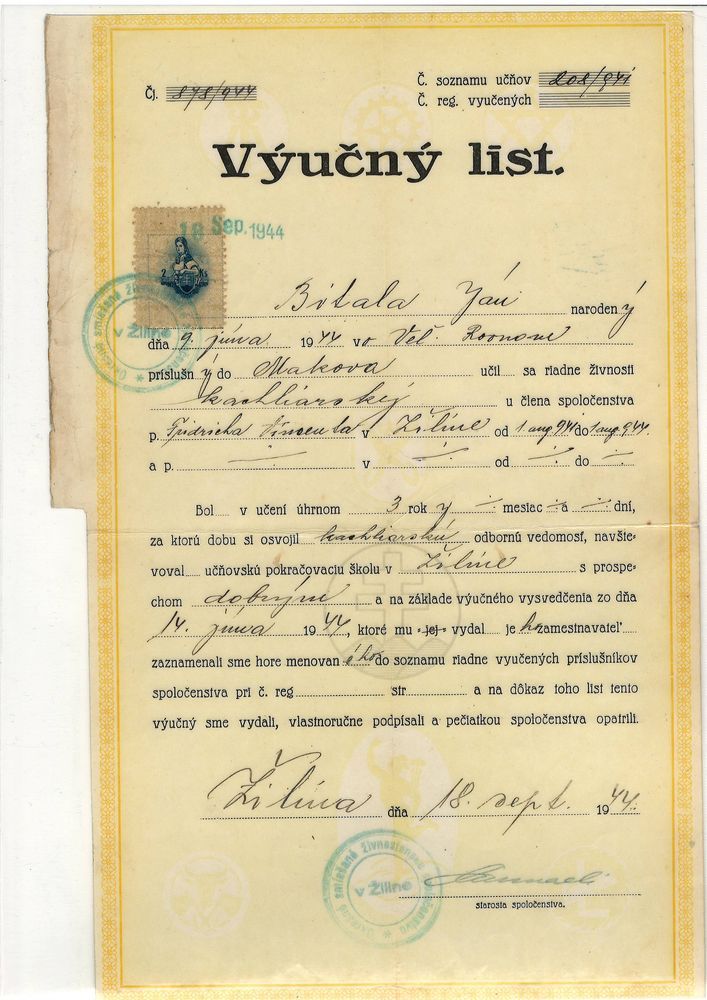 Čj. 878/944
Č. soznamu učňov 208/941
Č. reg. vyučených
Výučný list.
18 Sep. 1944
2 Ks
Bitala Ján narodený
dňa 9. júna 1944 vo Veľ. Rovnom
príslušný do Makova učil sa riadne živnosti
kachliarskej u člena spoločenstva
p. Fridricha Vincenta v Žiline od 1 aug 941 do 1 aug. 944.
a p. –:– v –:– od –:– do –:–
Bol v učení úhrnom 3 roky –:– mesiac –:– a –:– dní,
za ktorú dobu si osvojil kachliarskú odbornú vedomosť, navšte-
voval učňovskú pokračovaciu školu v Žiline s prospe-
chom dobrým a na základe výučného vysvedčenia zo dňa
14. júna 1944, ktoré mu -jej- vydal je ho zamestnavateľ
zaznamenali sme hore menovaného do soznamu riadne vyučených príslušníkov
spoločenstva pri č. reg. str. a na dôkaz toho list tento
výučný sme vydali, vlastnoručne podpísali a pečiatkou spoločenstva opatrili.
Žilina dňa 18. sept. 1944.
smiešané živnostenské
v Žiline
starosta spoločenstva.